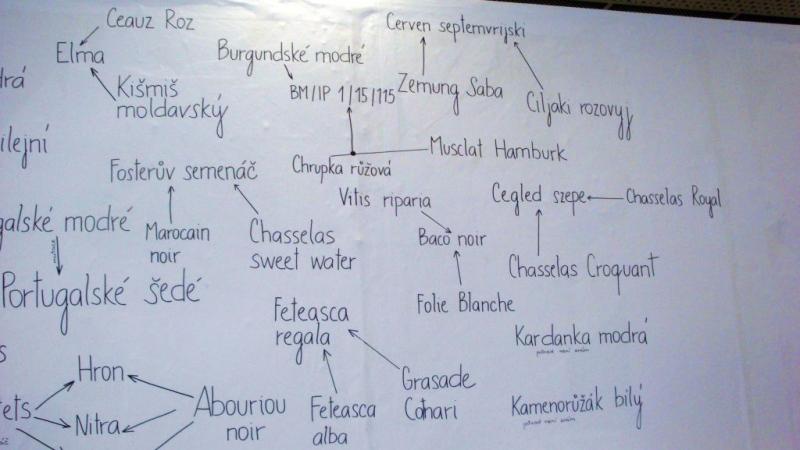 Ceauz Roz
Elma
Kišmiš
moldavský
Burgundské modré
BM/IP 1/15/115
Cerven septemvrijski
Zemung Saba
Ciljaki rozovyj
Musclat Hamburk
Chrupka růžová
Fosterův semenáč
Marocain
noir
Chasselas
sweet water
Vitis riparia
Baco noir
Folie Blanche
Cegled szepe
Chasselas Royal
Chasselas Croquant
modré
Portugalské šedé
Feteasca
regala
Feteasca
alba
Grasade
Cotnari
Kardanka modrá
Kamenorůžák bílý
Hron
Nitra
Abouriou
noir